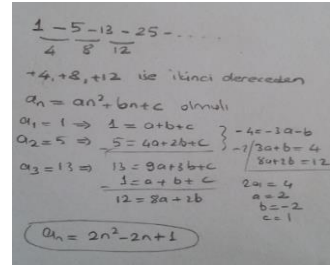 1 - 5 - 13 - 25 - .....
4 8 12
+4, +8, +12 ise ikinci dereceden
an = an²+bn+c olmalı
a1 = 1 ⇒ 1 = a+b+c
a2 = 5 ⇒ 5 = 4a+2b+c
-4 = -3a-b
a3 = 13 ⇒ 13 = 9a+3b+c
- 1 = a + b + c
12 = 8a + 2b
-2/ 3a+b = 4
8a+2b = 12
2a = 4
a = 2
b = -2
c = 1
an = 2n²-2n+1